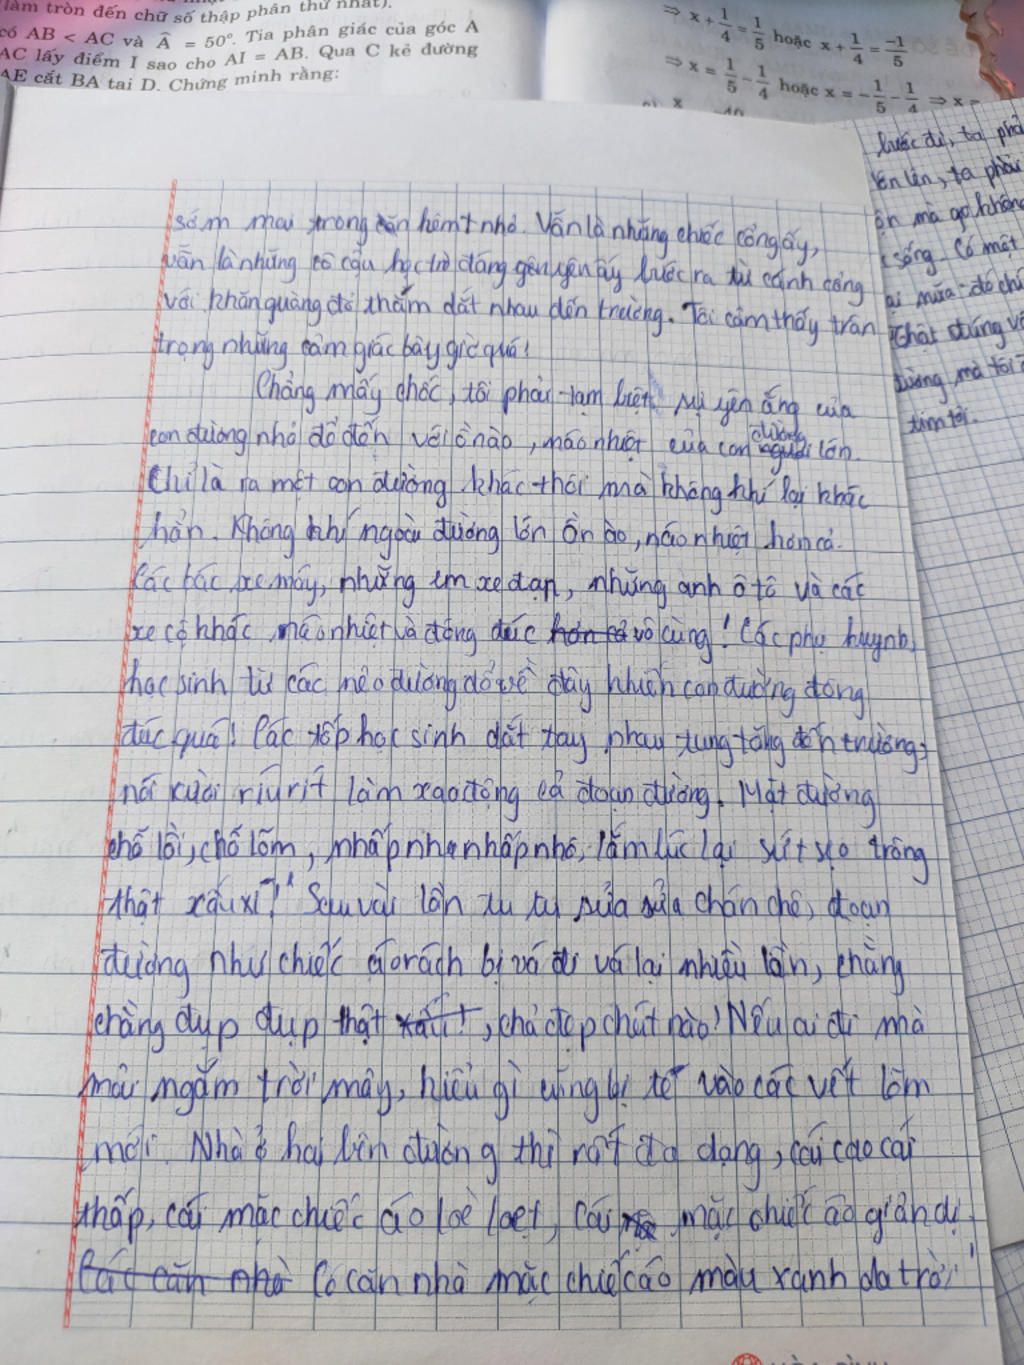 làm tròn đến chữ số thập phân thứ nhất).
có AB < AC và Â = 50°. Tia phân giác của góc A
AC lấy điểm I sao cho AI = AB. Qua C kẻ đường
AE cắt BA tại D. Chứng minh rằng:
⇒ x + 1/4 = 1/5 hoặc x + 1/4 = -1/5
⇒ x = 1/5 - 1/4 hoặc x = -1/5 - 1/4 ⇒ x =
sớm mai trong hẻm nhỏ. Vẫn là những chiếc cổng ấy,
vẫn là những cô cậu học trò đáng yên ấy bước ra từ cánh cổng
với khăn quàng đỏ thắm dắt nhau đến trường. Tôi cảm thấy trân
trọng những cảm giác bây giờ quá!
Chẳng mấy chốc, tôi phải tạm biệt sự yên ắng của
con đường nhỏ để đến với ồn ào, náo nhiệt của con đường lớn.
Chỉ là ra một con đường khác thôi mà không khí lại khác
hẳn. Không khí ngoài đường lớn ồn ào, náo nhiệt hơn cả.
Các bác xe máy, những em xe đạp, những anh ô tô và các
xe cộ khác, náo nhiệt và đông đúc hơn cả vô cùng! Các phụ huynh,
học sinh từ các nẻo đường đổ về đây khiến con đường đông
đúc quá! Các tốp học sinh dắt tay nhau tung tăng đến trường,
nói cười ríu rít làm xao động cả đoạn đường. Mặt đường
chỗ lồi, chỗ lõm, nhấp nhô, lắm lúc lại sứt sẹo trông
thật xấu xí! Sau vài lần tu tu sửa sửa chán chê, đoạn
đường như chiếc áo rách bị vá đi vá lại nhiều lần, chằng
chằng đụp đụp thật xấu, chả đẹp chút nào! Nếu ai đi mà
mải ngắm trời mây, kiểu gì cũng bị té vào các vết lõm
mới. Nhà ở hai bên đường thì rất đa dạng, cái cao cái
thấp, cái mặc chiếc áo loè loẹt, cái mặc chiếc áo giản dị.
Các căn nhà Có căn nhà mặc chiếc áo màu xanh da trời
bước đi, ta phả
lớn lên, ta phải
mà go không
sống. Có một
Thật đúng v
đường mà tôi
tìm tòi.